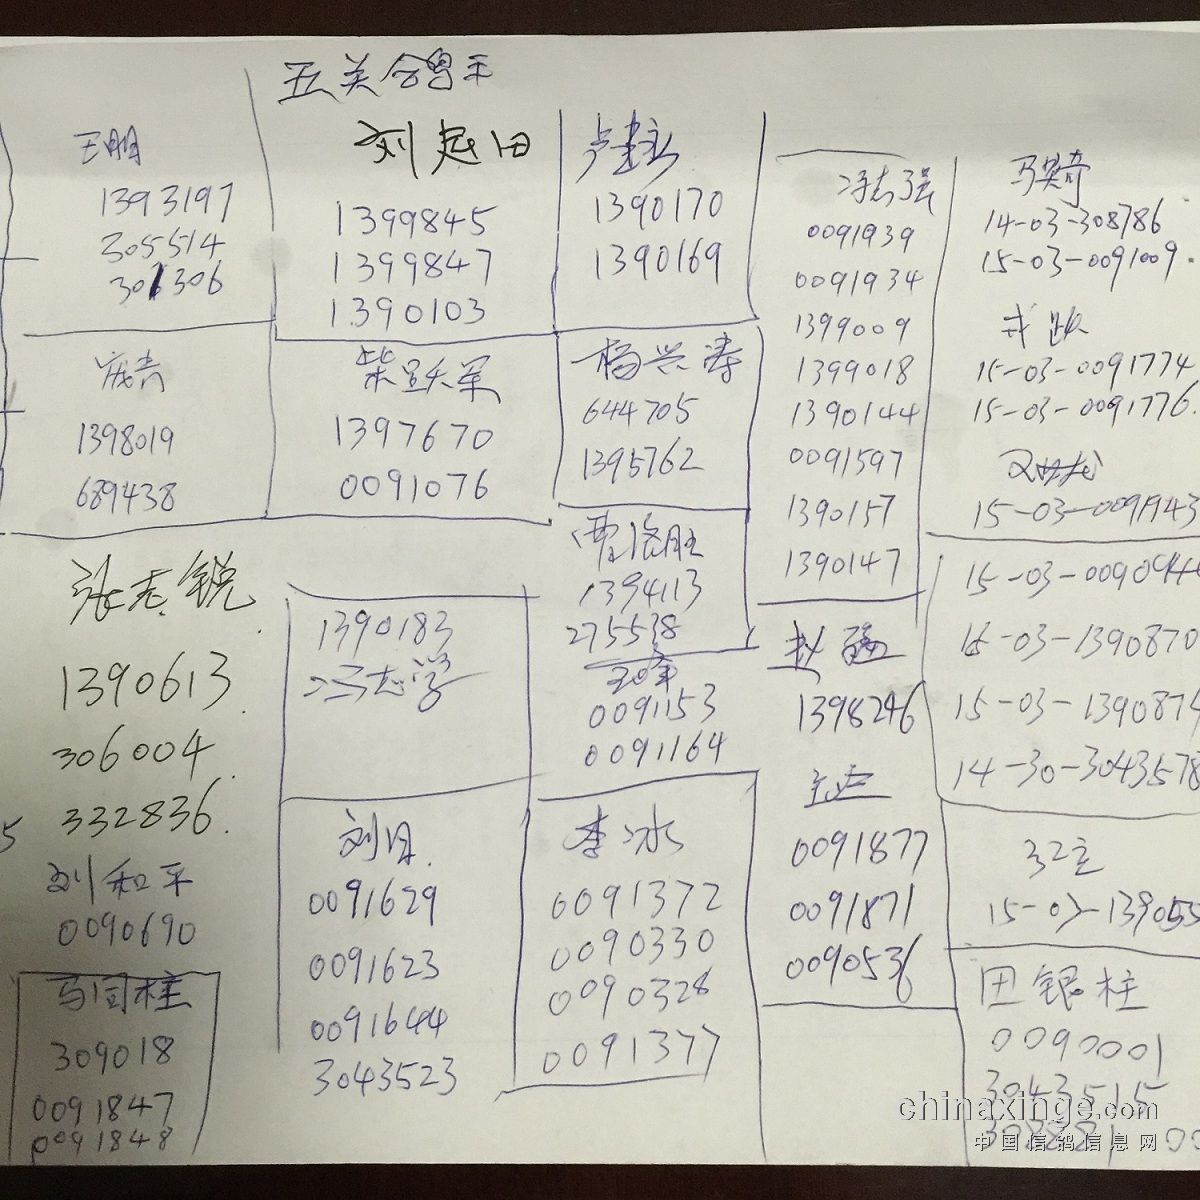 五关鸽王
王朋
1393197
305514
301306
刘起田
1399845
1399847
1390103
卢建永
1390170
1390169
冯志强
0091939
0091934
1399009
1399018
1390144
0091597
1390157
1390147
马英奇
14-03-308786
15-03-0091009
15-03-0091774
15-03-0091776
15-03-0091943
1398019
689438
1397670
0091076
杨兴涛
644705
1395762
1394113
275538
0091153
0091164
张志锐
1390613
306004
332836
1390183
冯志学
赵强
1398246
0091877
0091871
0090536
15-03-1390870
15-03-1390874
14-30-3043578
刘和平
0090690
马同柱
309018
0091847
0091848
刘月
0091629
0091623
0091644
3043523
李冰
0091372
0090330
0090328
0091377
15-03-139055
田银柱
0090001
3043515
chinaxinge.com
中国信鸽信息网